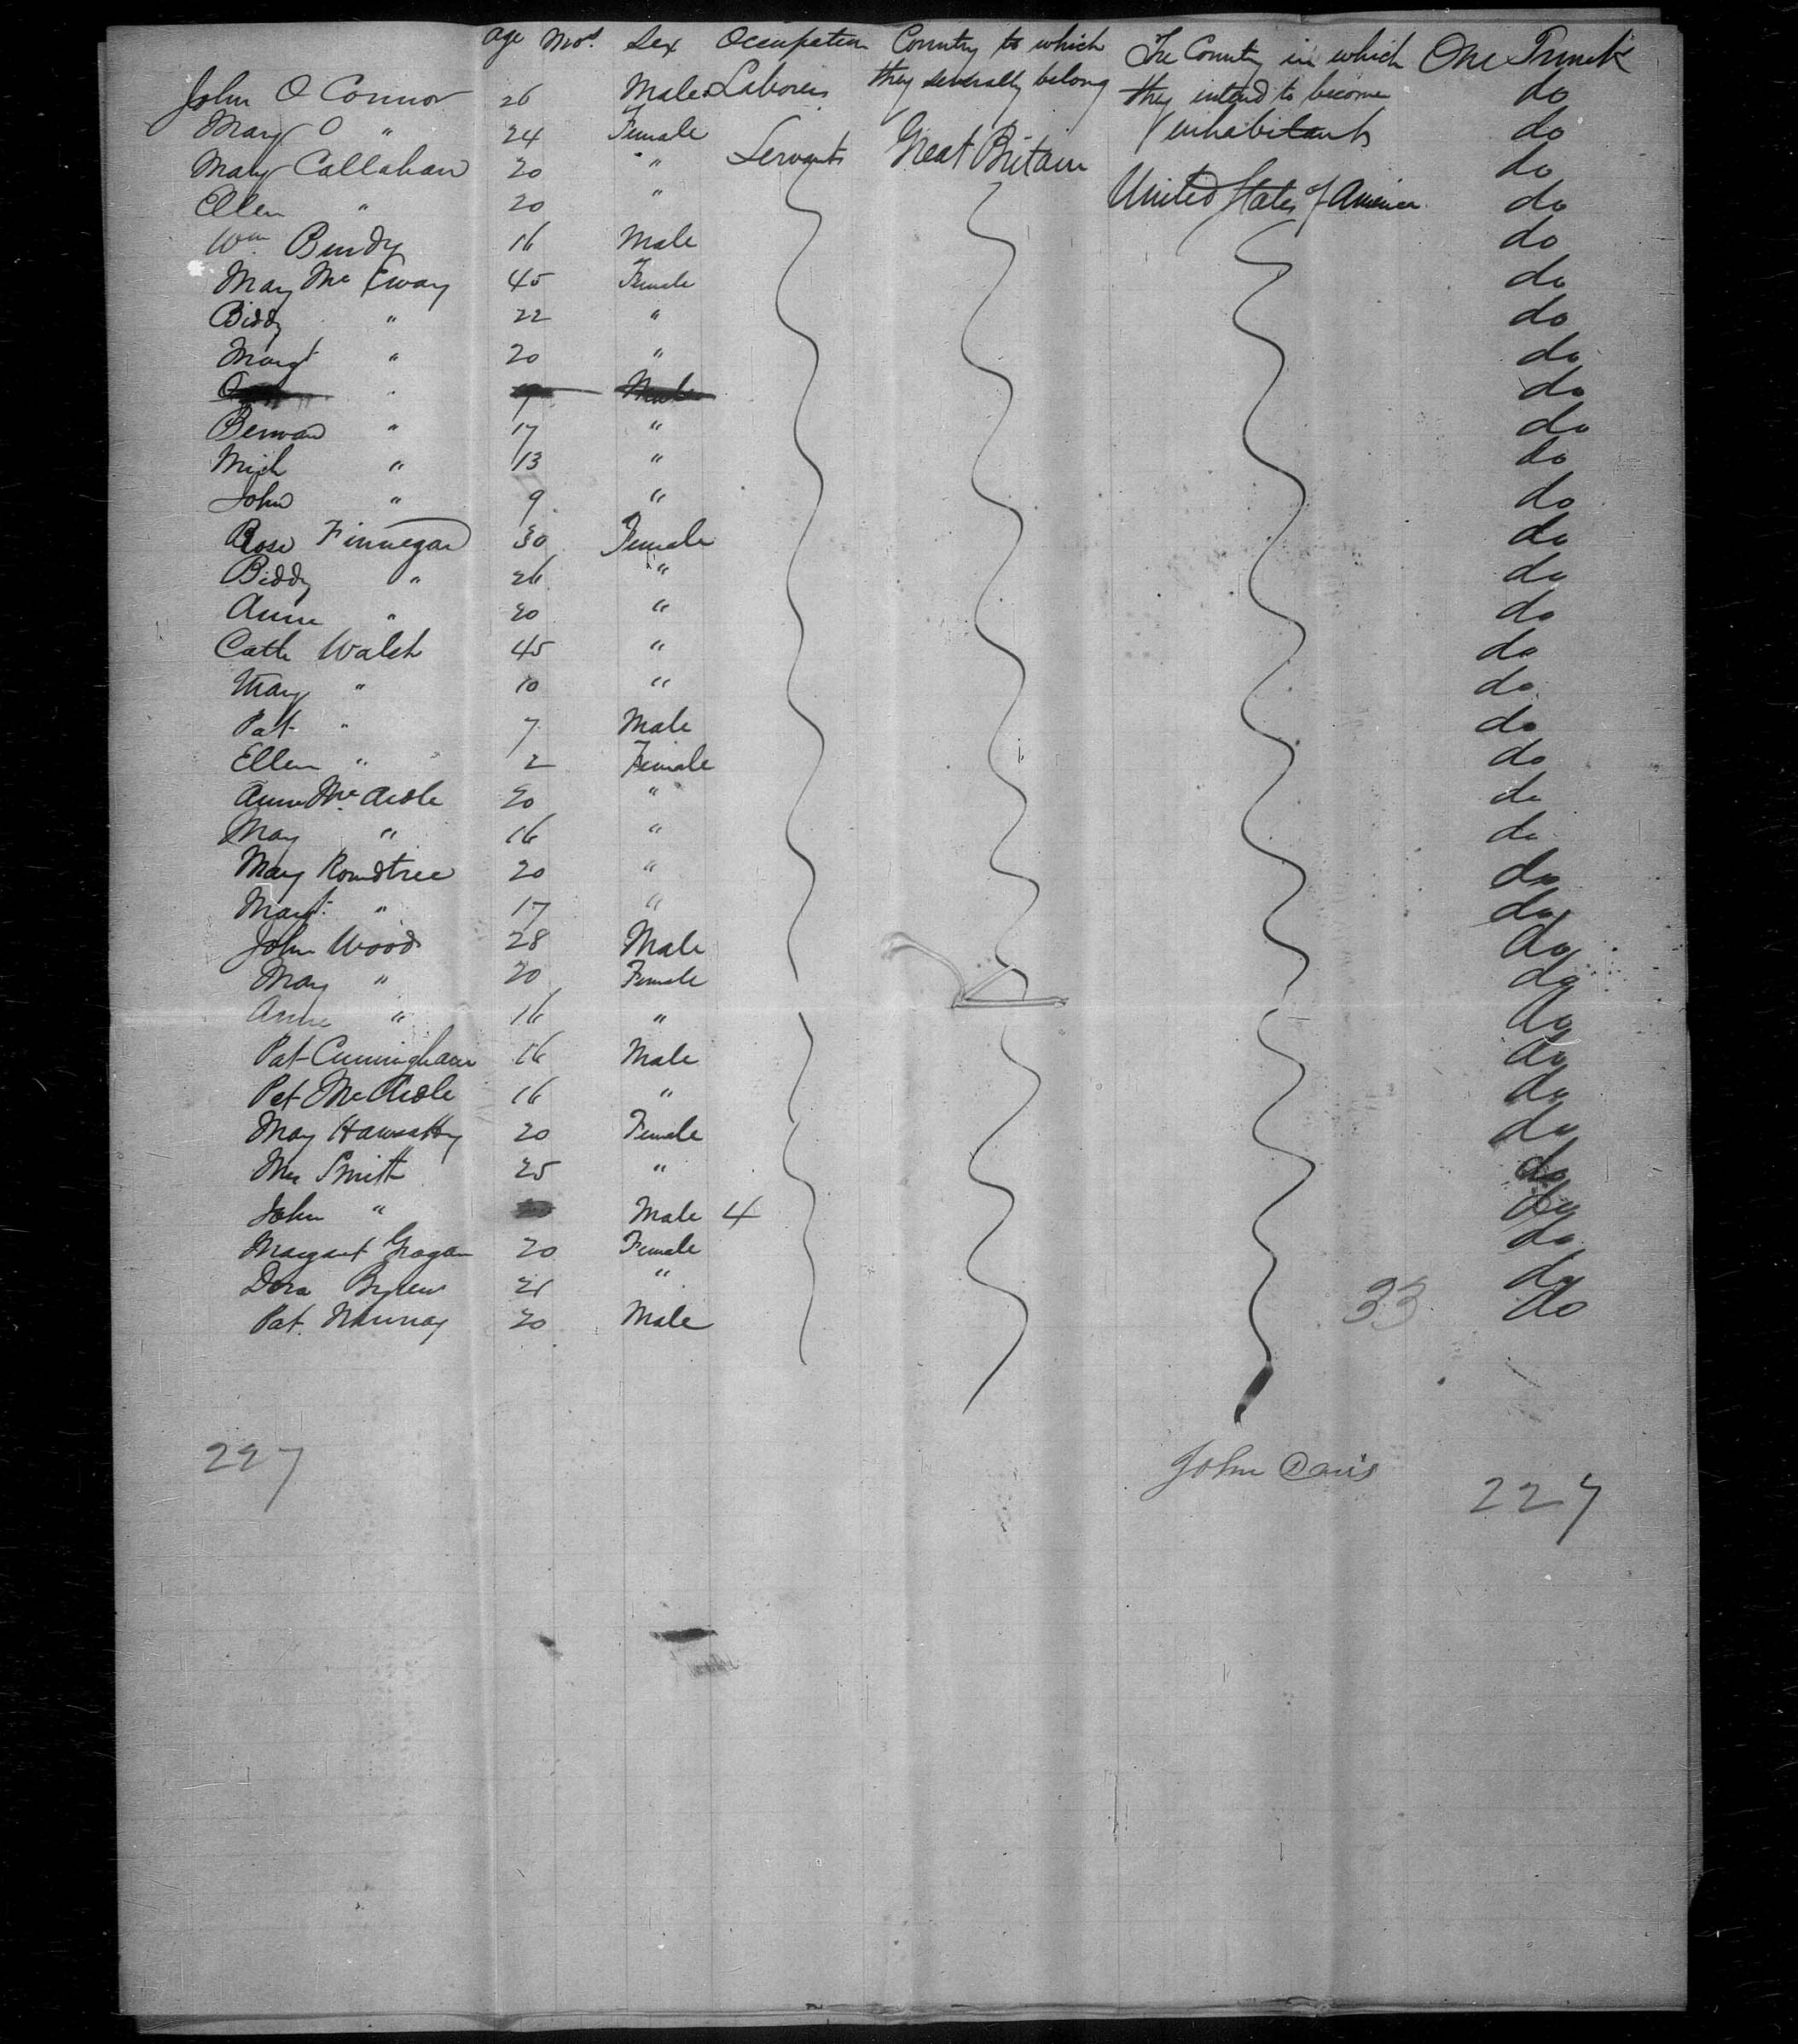 Age Mos. Sex Occupation Country to which they severally belong The Country in which they intend to become inhabitants One Trunk
John O Connor 26 Male Laborers do
Mary O " 24 Female do
Mary Callahan 20 " Servants Great Britain do
Ellen " 20 " United States of America do
Wm Bundy 16 Male do
Mary Mc Evoy 45 Female do
Biddy " 22 " do
Margt " 20 " do
Male do
Bernard " 17 " do
Mich " 13 " do
John " 9 " do
Rose Finnegan 30 Female do
Biddy " 26 " do
Anne " 20 " do
Cath Walsh 45 " do
Mary " 10 " do
Pat " 7 Male do
Ellen " 2 Female do
Anne Mc Ardle 20 " do
Mary " 16 " do
Mary Roundtree 20 " do
Margt. " 17 " do
John Wood 28 Male do
Mary " 20 Female do
Anne " 16 " do
Pat Cunningham 16 Male do
Pat Mc Ardle 16 " do
Mary 20 Female do
Mrs Smith 25 " do
John " Male 4 do
Margaret Grogan 20 Female do
Dora 21 " do
Pat. Murray 20 Male 33 do
227 John Davis 227